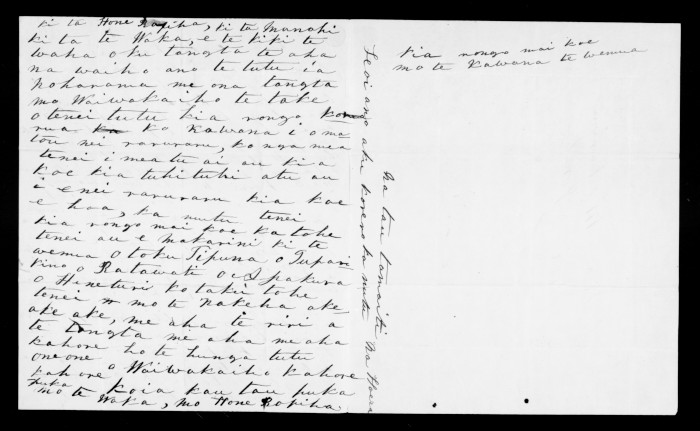 ki ta Hone Ropiha, ki ta Manahi
ki ta te Waka, e te kiki te
waha o ku tangta te aha
na waiho ano te tutu ia
Poharama me ona tangta
mo Waiwakaiho te take
o tenei tutu kia rongo
rua ko Kawana i o ma
tou nei raruraru, ko nga mea
tenei i mea tu ai au kia
koe kia tuhituhi atu au
i enei raruraru kia koe
e hoa, ka mutu tenei
kia rongo mai koe ka tohe
tenei au e Makarini ki te
wenua o toku Tipuna o Tupari
kino o Ratawati o
o Hineturi ko taku tohe
tenei mo te Pakeha ake
ake ake, me aha te riri a
te tangta me aha me aha
kahore ho te hunga tutu
oneone o Waiwakaiho kahore
kahore koia kau tau puka
puka
mo te Waka, mo Hone Ropiha.
Heoi ano aku korero ka mutu
Na tau tamaiti
Na Hone
kia rongo mai koe
mo te Kawana te wenua